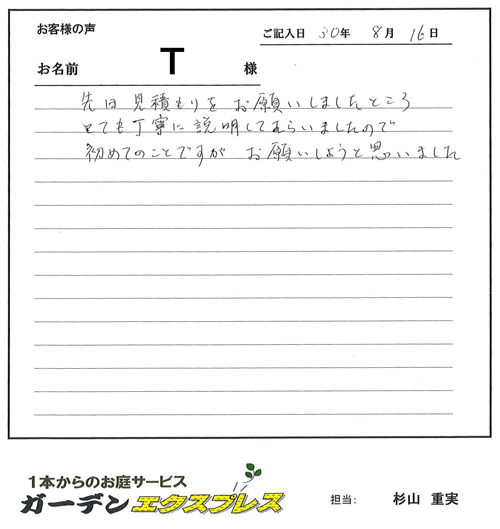 お客様の声
ご記入日 30年 8月 16日
お名前 T 様
先日見積もりをお願いしましたところ
とても丁寧に説明してもらいましたので
初めてのことですが お願いしようと思いました
1本からのお庭サービス
ガーデンエクスプレス
担当: 杉山 重実